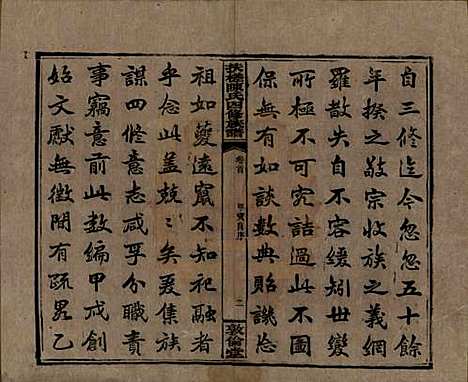 自三修迄今忽忽五十餘
年揆之敬宗收族之義網
羅散失自不容緩矧世變
所極不可究詰過此不圖
保無有如談數典貽譏忘
扶椽陳氏四修族譜
卷首
二
敦倫堂
祖如夔遠竄不知祀融者
乎念此蓋兢兢矣爰集族
謀四修意志咸孚分職責
事竊意前此數編甲戌創
始文獻無徵間有疏畧乙